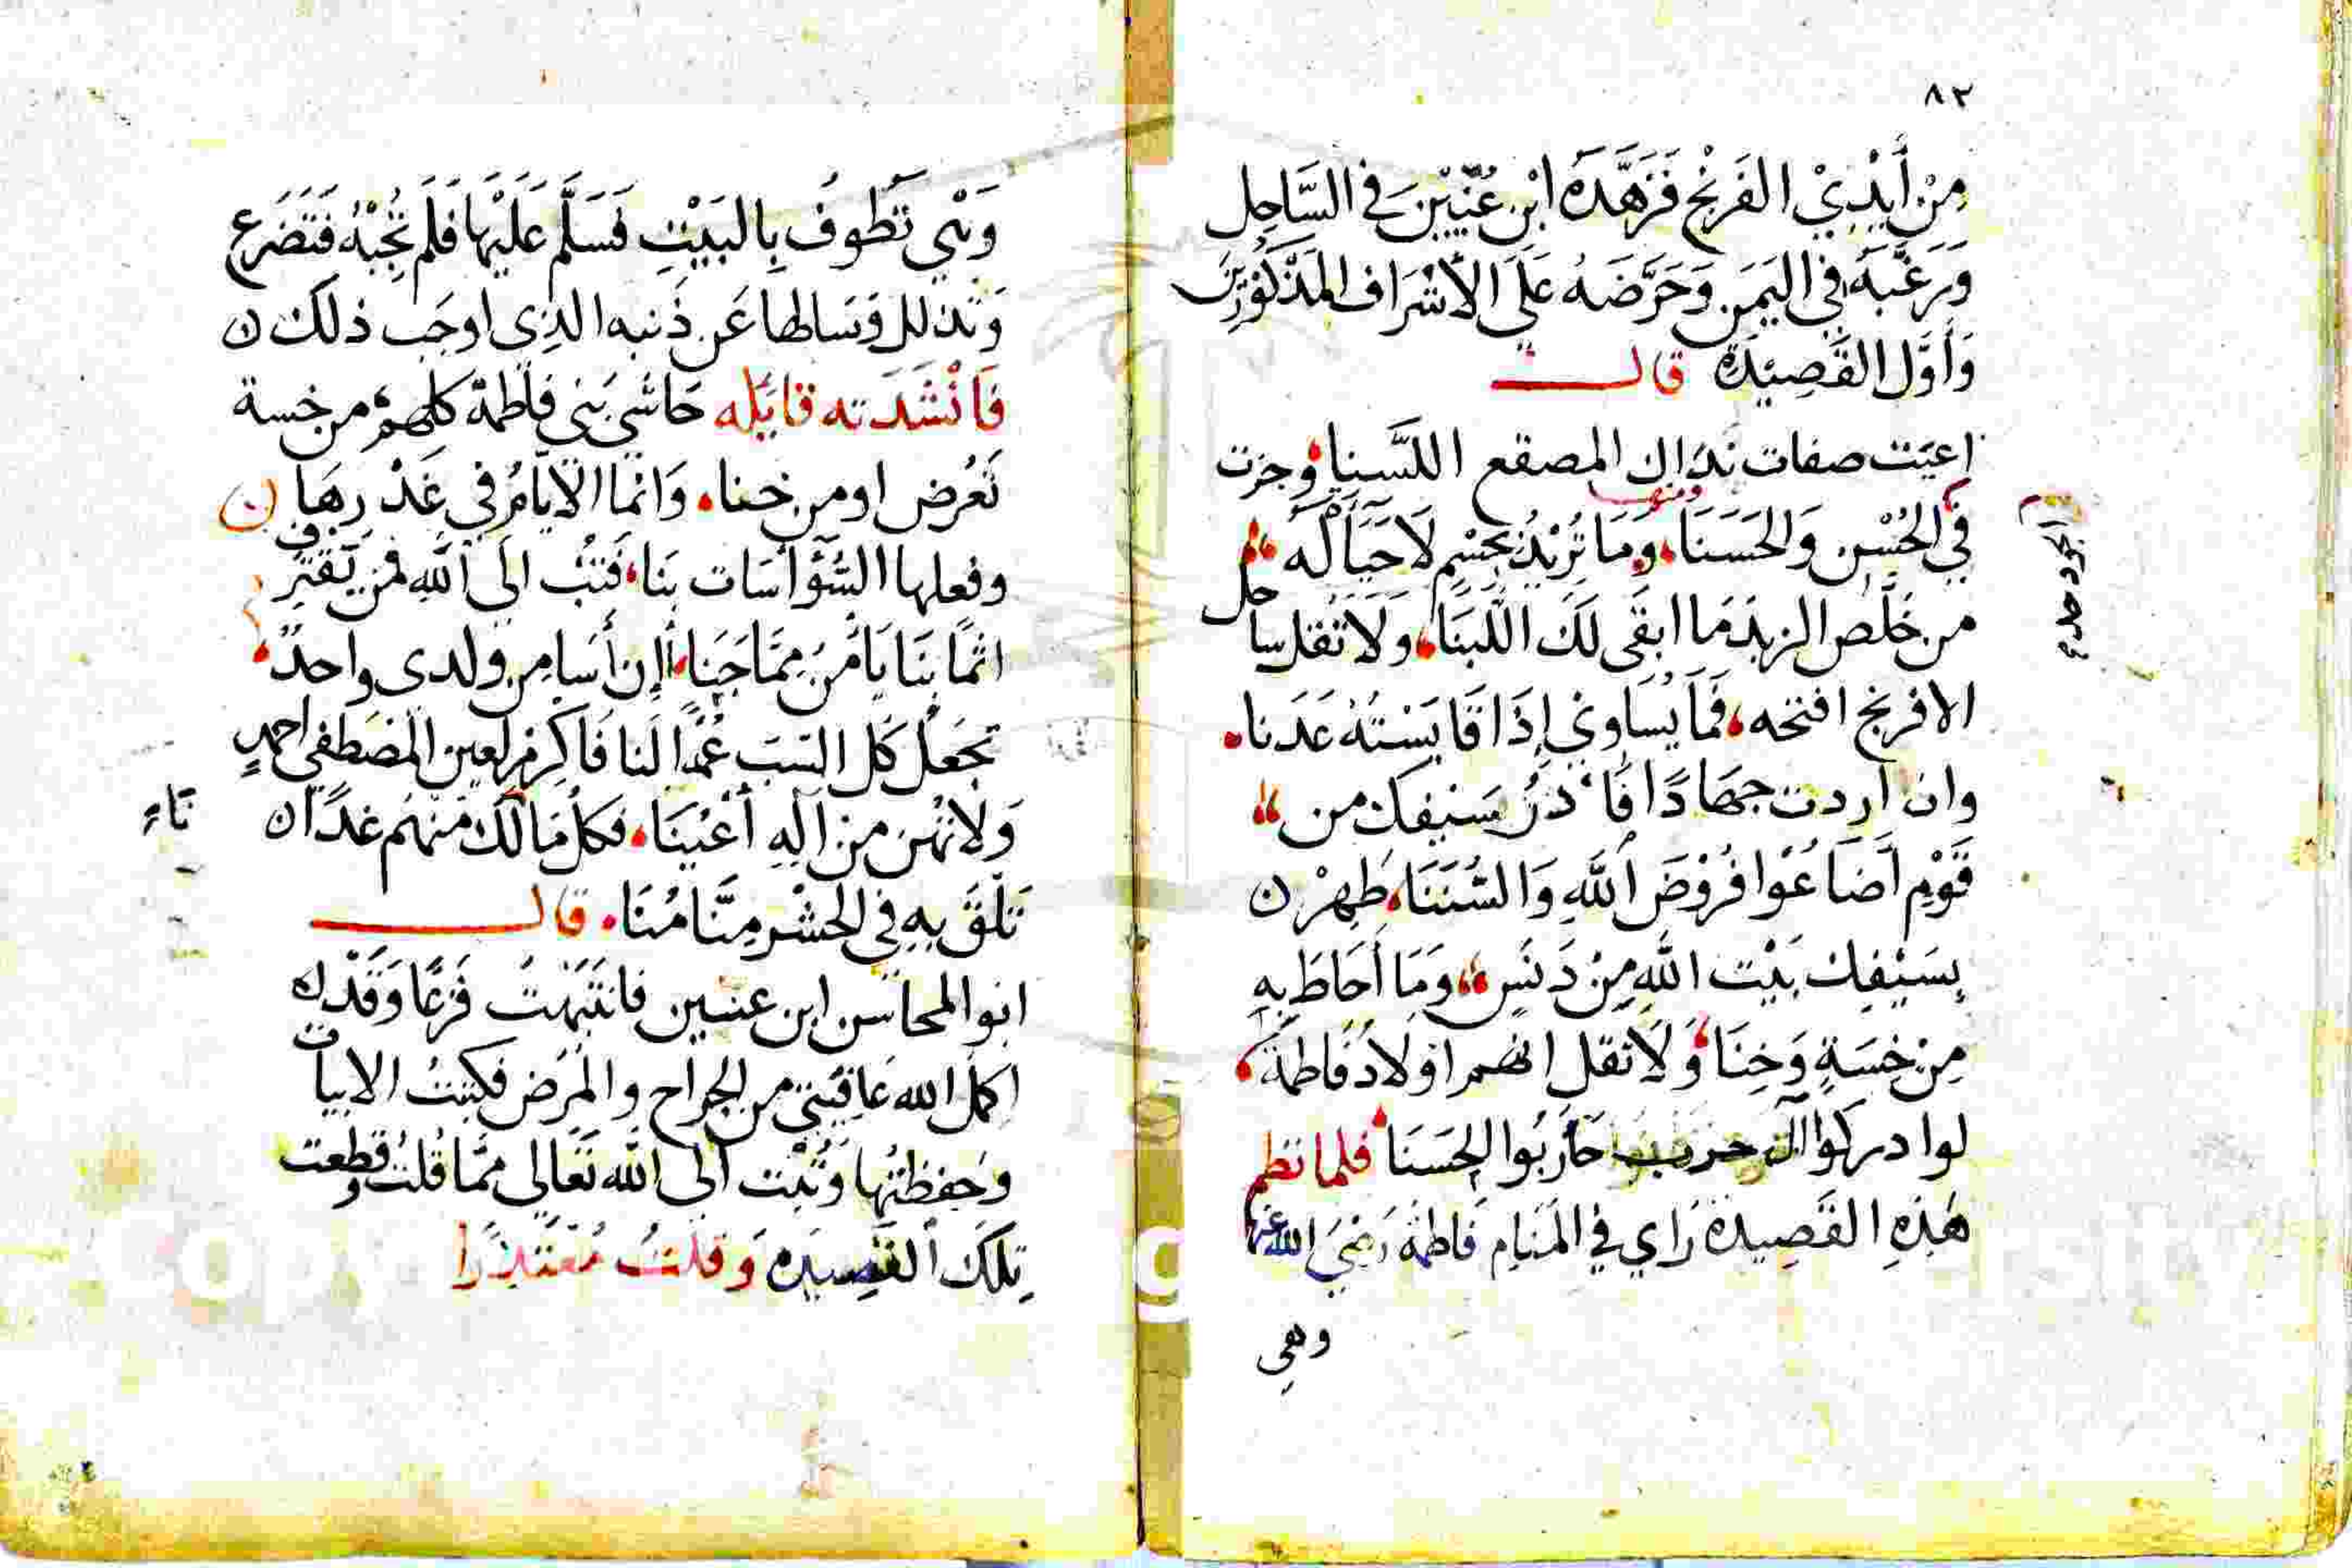 ٨٢
مِنْ أَيْدِيْ الفَرَنْج فَزَهَّدَهُ ابْن عُنَّيْن فِي السَّاحِل
وَرَغَّبَهُ فِي اليَمَن وَحَرَّضَهُ عَلَى الأَشْرَاف المَذْكُوْرِيْنَ
وَأَوَّل القَصِيْدَةِ قال
اعيَت صفات نداك المصقع اللَّسِنا وجزت
ومنها
في الحُسْنِ وَالحَسَنَا وَمَا تُرِيْدُ بِجِسْمٍ لَا حَيَاةَ لَهُ
من خَلَّص الزبدَ مَا ابقَى لَكَ اللَّبَنَا وَلَا تَقُل ساحل
الافرنج افتحه فَمَا يُسَاوِي إِذَا قَايَسْتَهُ عَدَنا
وان اردت جهَادًا فَا دْرُ سَيْفِك من
قَوْمٍ أَضَاعُوْا فُرُوْضَ اللَّهِ وَالسُّنَنَا طَهِرْ
بِسَيْفِك بَيْتَ اللَّهِ مِنْ دَنَسٍ وَمَا أَحَاطَ بِهِ
مِنْ خِسَةٍ وَخِنَا وَلَا تقل انهم اوْلَادُ فَاطمة
لوا دركوا آل حرب حَارَبُوا الحَسَنَا فلما نظم
هَذِهِ القَصِيدة رَاي في المَنَامِ فَاطمَةُ رَضِيَ الله عنها
وهي
وَهْيَ تَطُوفُ بِالبَيْتِ فَسَلَّمَ عَلَيْهَا فَلَم تُجِبْهُ فَتَضَرَع
وَتَذلل وَسَالها عَن ذَنبه الذِي اوجَب ذلكَ
فَأنْشَدَته قايلَه حَاشى بَني فَاطمة كلهم من خسة
تَعْرُض او من خنا وَانما الايّامُ في غَدْرِهَا
وفعلها السُّؤْ أسَات بنَا فَتُبْ الَى اللَّهِ فمن يَقتَرِف
اثمًا بنَا يَأمَنُ مِمَّا جَنَا أإن أسَا من ولدى واحدٌ
تجعَل كَل السَب عَمدًا لَنا فَاكرِم لعين المُصْطفى احمدٍ
وَلَا تهُن من آلِهِ أَعْيُنَا فكل مَا نالكَ منهم غدًا
تَلْقَ بِهِ في الحَشْر مِنَّا مُنَا قال
ابو المحاسن ابن عنين فانتَبَهْتُ فَزِعًا وَقَدْ
اكمل الله عَافيَتي من الجراح والمرَض فكتبتُ الابيات
وَحفظتُها وَتُبْت الى الله تَعَالى مما قُلت وقطعت
تِلْكَ القَصِيده وَقلتُ مُعتَذرًا